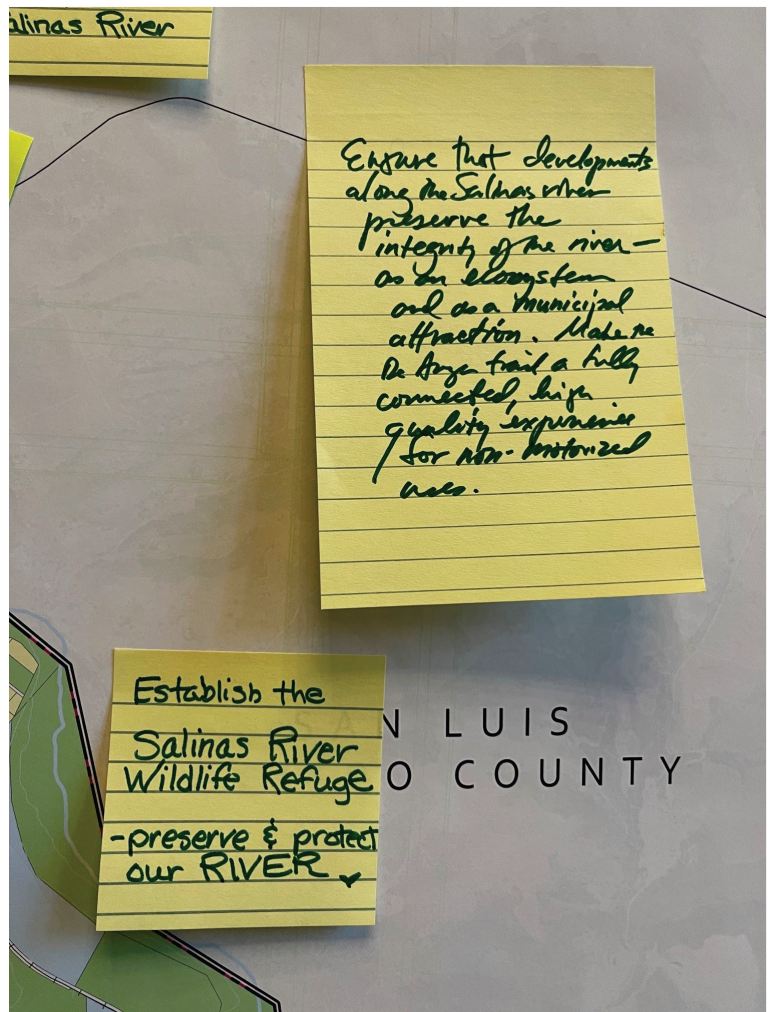 alinas River
Ensure that developments
along the Salinas river
preserve the
integrity of the river—
as an ecosystem
and as a municipal
attraction. Make the
De Anza trail a fully
connected, high
quality experience
for non-motorized
uses.
Establish the
Salinas River
Wildlife Refuge
-preserve & protect
our RIVER
SAN LUIS
O COUNTY